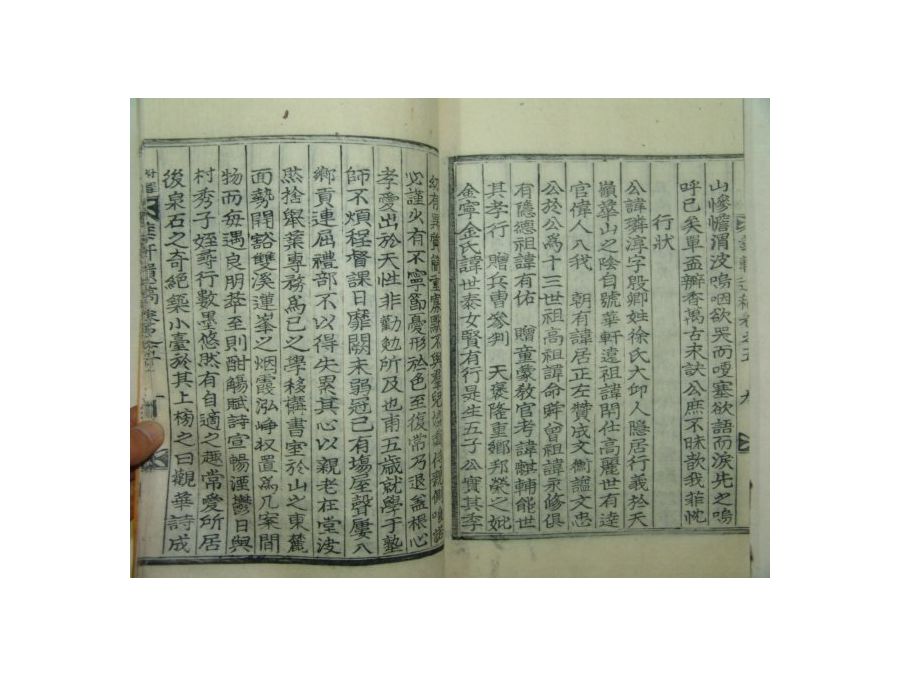 山慘憺渭波嗚咽欲哭而哽塞欲語而淚先之嗚
呼已矣單盃瓣香萬古未訣公庶不昧歆我菲忱
行狀
公諱獜淳字殷卿姓徐氏大邱人隱居行義於天
嶺華山之陰自號華軒遠祖諱閈仕高麗世有達
官偉人入我 朝有諱居正左贊成文衡謚文忠
公於公爲十三世祖高祖諱命 曾祖諱永修俱
有隱德祖諱有佑 贈童蒙敎官考諱麟輔能世
其孝行 贈兵曹參判 天褒隆重鄕邦榮之妣
金寧金氏諱世泰女賢有行是生五子公寔其季
幼有異質 重寡默不與羣兒
必謹少有不寧節憂形於色至復常乃退盖根心
孝愛出於天性非勸勉所及也甫五歲就學于塾
師不煩程督課日靡闕未弱冠已有塲屋聲屢入
鄕貢連屈禮部不以得失累其心以親老在堂浚
然捨擧業專務爲己之學移 書室於山之東麓
面勢開豁雙溪蓮峯之烟霞泓崢収置爲几案間
物而每遇良朋萃至則酣觴賦詩宣暢湮鬱日與
村秀子姪尋行數墨悠然有自適之趣常愛所居
後泉石之奇絶築小臺於其上榜之曰觀華詩成